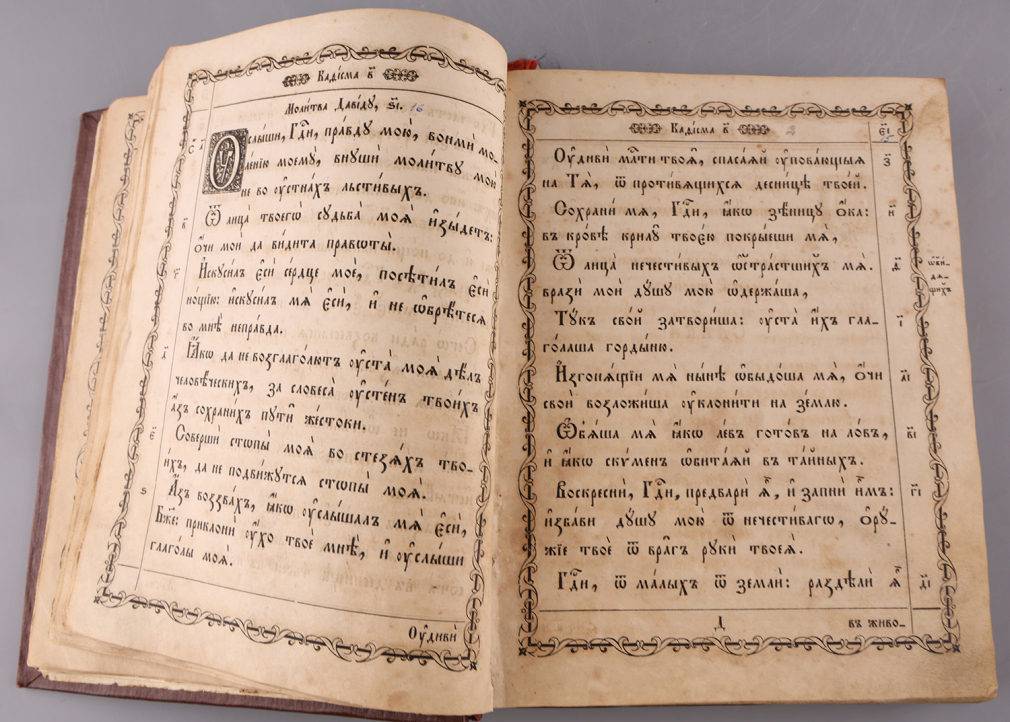 Каѳі́сма в҃
Моли́тва Даві́ду, ѕ҃і. 16
Оу҆слы́ши, Гдⷭ҇и, пра́вду мою̀, вонмѝ мо-
ле́нїю моемꙋ̀, внꙋшѝ моли́твꙋ мою̀
не во оу҆стна́хъ льсти́выхъ.
в҃ Ѿ лица̀ твоегѡ̀ сꙋдьба̀ моѧ̀ и҆зы́детъ:
ѻ҆́чи моѝ да ви́дита правѡты̑.
г҃ И҆скꙋси́лъ є҆сѝ се́рдце моѐ, посѣти́лъ є҆сѝ
но́щїю: и҆скꙋси́лъ мѧ̀ є҆сѝ, и҆ не ѡ҆брѣ́теся
во мнѣ̀ непра́вда.
д҃ Ꙗ҆́кѡ да не возглаго́лютъ оу҆ста̀ моѧ̀ дѣ́лъ
человѣ́ческихъ, за словеса̀ оу҆сте́нъ твои́хъ
а҆́зъ сохрани́хъ пꙋти̑ жє́стоки.
є҃ Совершѝ стѡпы̀ моѧ̑ во стезѧ́хъ тво-
и́хъ, да не подви́жꙋтсѧ стѡпы̀ моѧ̑.
ѕ҃ А҆́зъ воззва́хъ, ꙗ҆́кѡ оу҆слы́шалъ мѧ̀ є҆сѝ,
Бж҃е: приклонѝ оу҆́хо твоѐ мнѣ̀, и҆ оу҆слы́ши
глаго́лы моѧ̑.
Оу҆дивѝ
Каѳі́сма в҃ 2
є҃і
з҃ Оу҆дивѝ млⷭ҇ти твоѧ̑, спаса́ѧй оу҆пова́ющыѧ
на Тѧ̀, ѿ проти́вѧщихсѧ десни́цѣ твое́й.
и҃ Сохранѝ мѧ, Гдⷭ҇и, ꙗ҆́кѡ зѣ́ницꙋ ѻ҆́ка:
въ кро́вѣ крилꙋ̀ твоє́ю покры́еши мѧ̀,
ѳ҃ Ѿ лица̀ нечести́выхъ ѡ҆стра́стшихъ мѧ̀.
вразѝ моѝ дꙋ́шꙋ мою̀ ѡ҆держа́ша,
ѡ҆би-
дѧ-
щихъ
і҃ Тꙋ́къ сво́й затвори́ша: оу҆ста̀ и҆́хъ гла-
го́лаша горды́ню.
а҃і И҆згонѧ́щїи мѧ̀ ны́нѣ ѡ҆быдо́ша мѧ̀, ѻ҆́чи
своѝ возложи́ша оу҆клони́ти на зе́млю.
в҃і Ѡ҆б̾ѧ́ша мѧ̀ ꙗ҆́кѡ ле́въ гото́въ на ло́въ,
и҆ ꙗ҆́кѡ скѵ́менъ ѡ҆бита́ѧй въ та́йныхъ.
г҃і Воскреснѝ, Гдⷭ҇и, предварѝ ѧ҆̀, и҆ запнѝ и҆̀мъ:
и҆зба́ви дꙋ́шꙋ мою̀ ѿ нечести́вагѡ, ѻ҆рꙋ́-
жїе твоѐ ѿ вра̑гъ рꙋкѝ твоеѧ̀.
д҃і Гдⷭ҇и, ѿ ма́лыхъ ѿ землѝ: раздѣлѝ ѧ҆̀
Д въ живо-